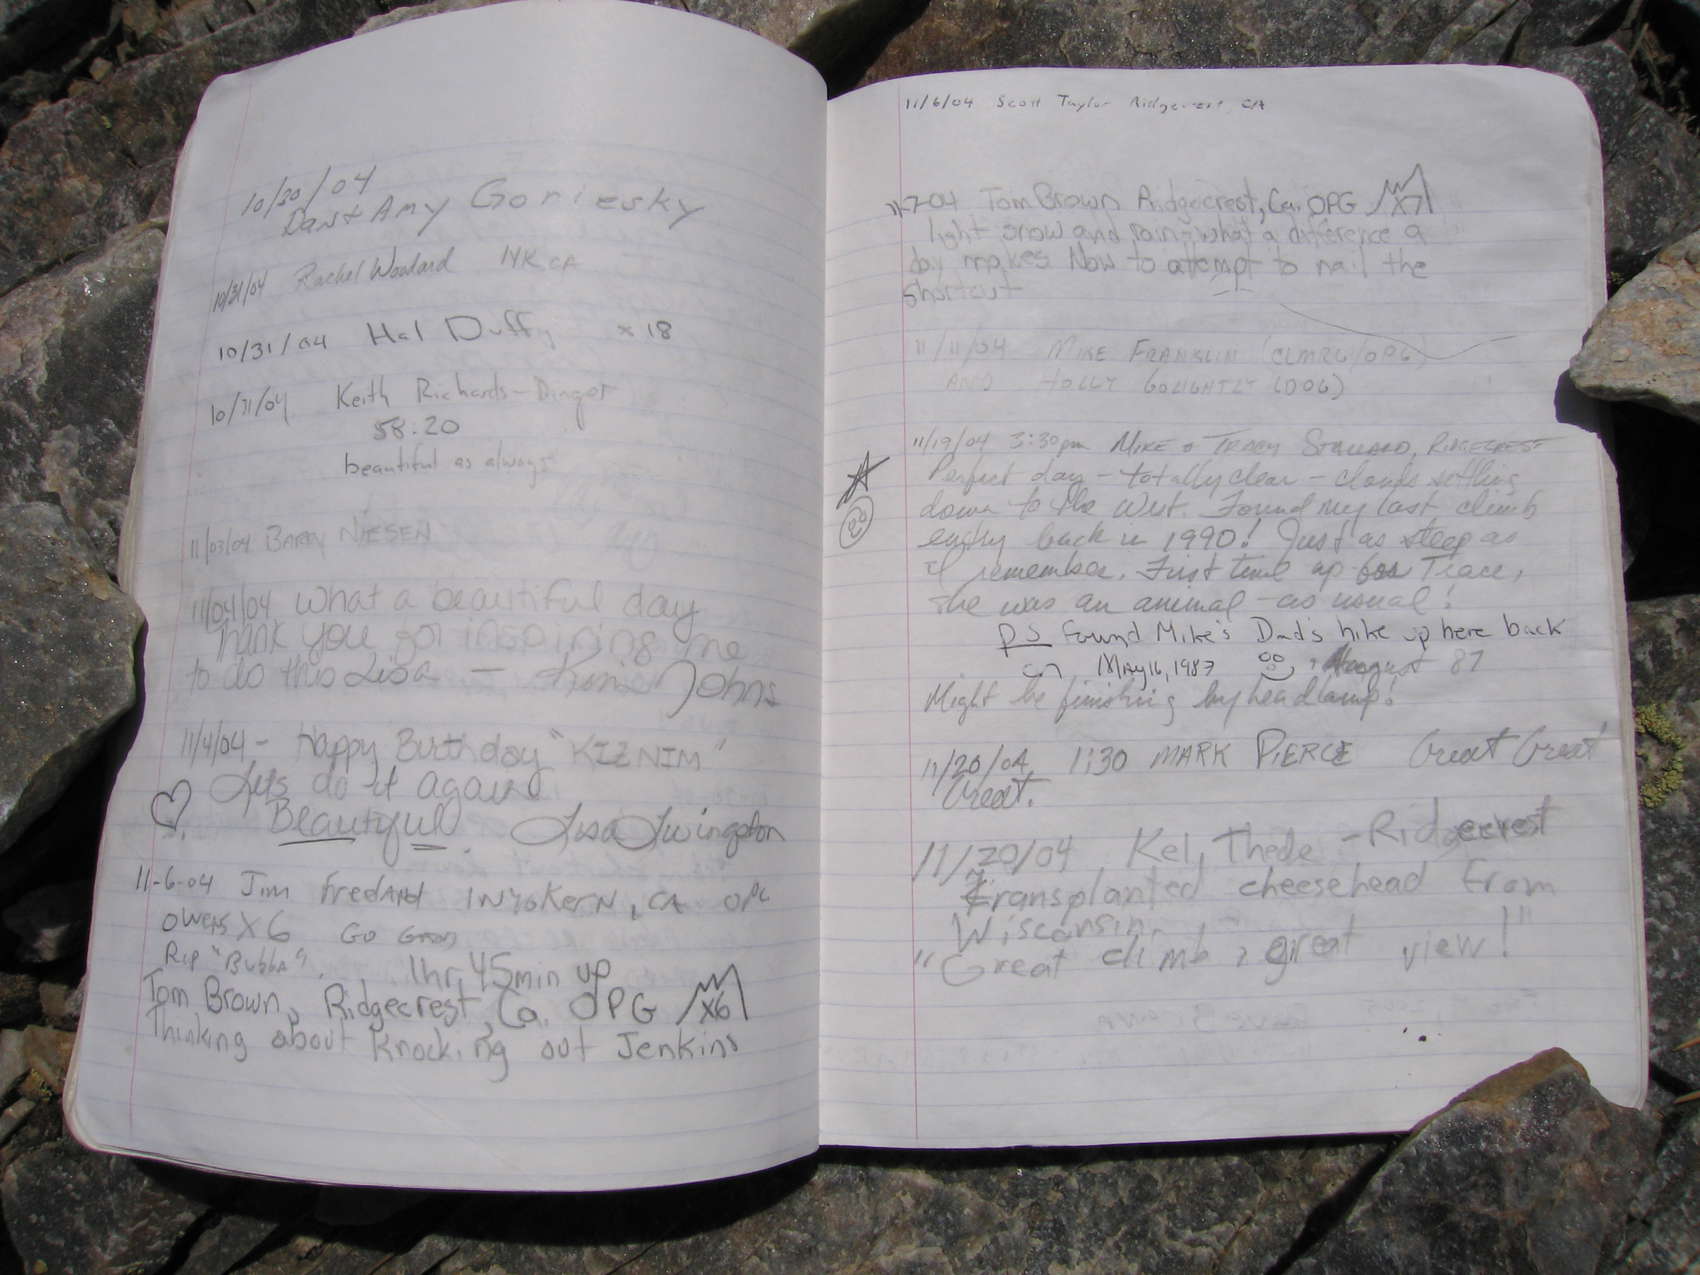 10/30/04
Dan & Amy Goriesky
10/31/04 Rachel Woodard IYK CA
10/31/04 Hal Duffy x 18
10/31/04 Keith Richards-Dinger
58:20
beautiful as always
11/03/04 BARRY NIESEN
11/04/04 what a beautiful day
Thank you for inspiring me
to do this Lisa — Johns
11/4/04 - Happy Birthday "KIZNIM"
Lets do it again
Beautyful. Lisa Livingston
11-6-04 Jim Fredard INYOKERN, CA OPG
OWENS X6 GO
Rip "Bubba". 1hr, 45min up
Tom Brown, Ridgecrest, Ca. OPG X6
Thinking about knocking out Jenkins
11/6/04 Scott Taylor Ridgecrest, CA
11-7-04 Tom Brown Ridgecrest, Ca. OPG X7
light snow and rain-what a difference a
day makes Now to attempt to nail the
shortcut
11/11/04 MIKE FRANKLIN (CLMRG/OPG)
AND HOLLY GOLIGHTLY (DOG)
11/19/04 3:30pm MIKE & TRACY RIDGECREST
Perfect day - totally clear - clouds settling
down to the West. Found my last climb
entry back in 1990! Just as steep as
I remember. First time up for Trace,
She was an animal - as usual!
PS Found Mike's Dad's hike up here back
on May 16, 1987 , August 87
Might be finishing by headlamp!
11/20/04 1:30 MARK PIERCE Great Great
Great.
11/20/04 Kel, Thede - Ridgecrest
transplanted cheesehead from
Wisconsin.
"Great climb, great view!"